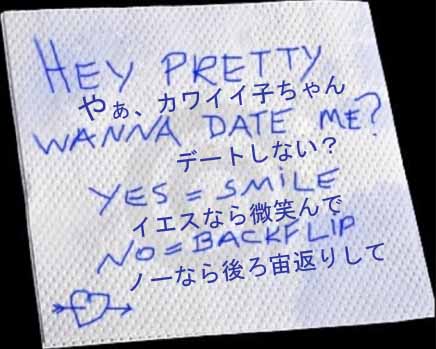 HEY PRETTY
やぁ、カワイイ子ちゃん
WANNA DATE ME?
デートしない？
YES = SMILE
イエスなら微笑んで
NO = BACKFLIP
ノーなら後ろ宙返りして